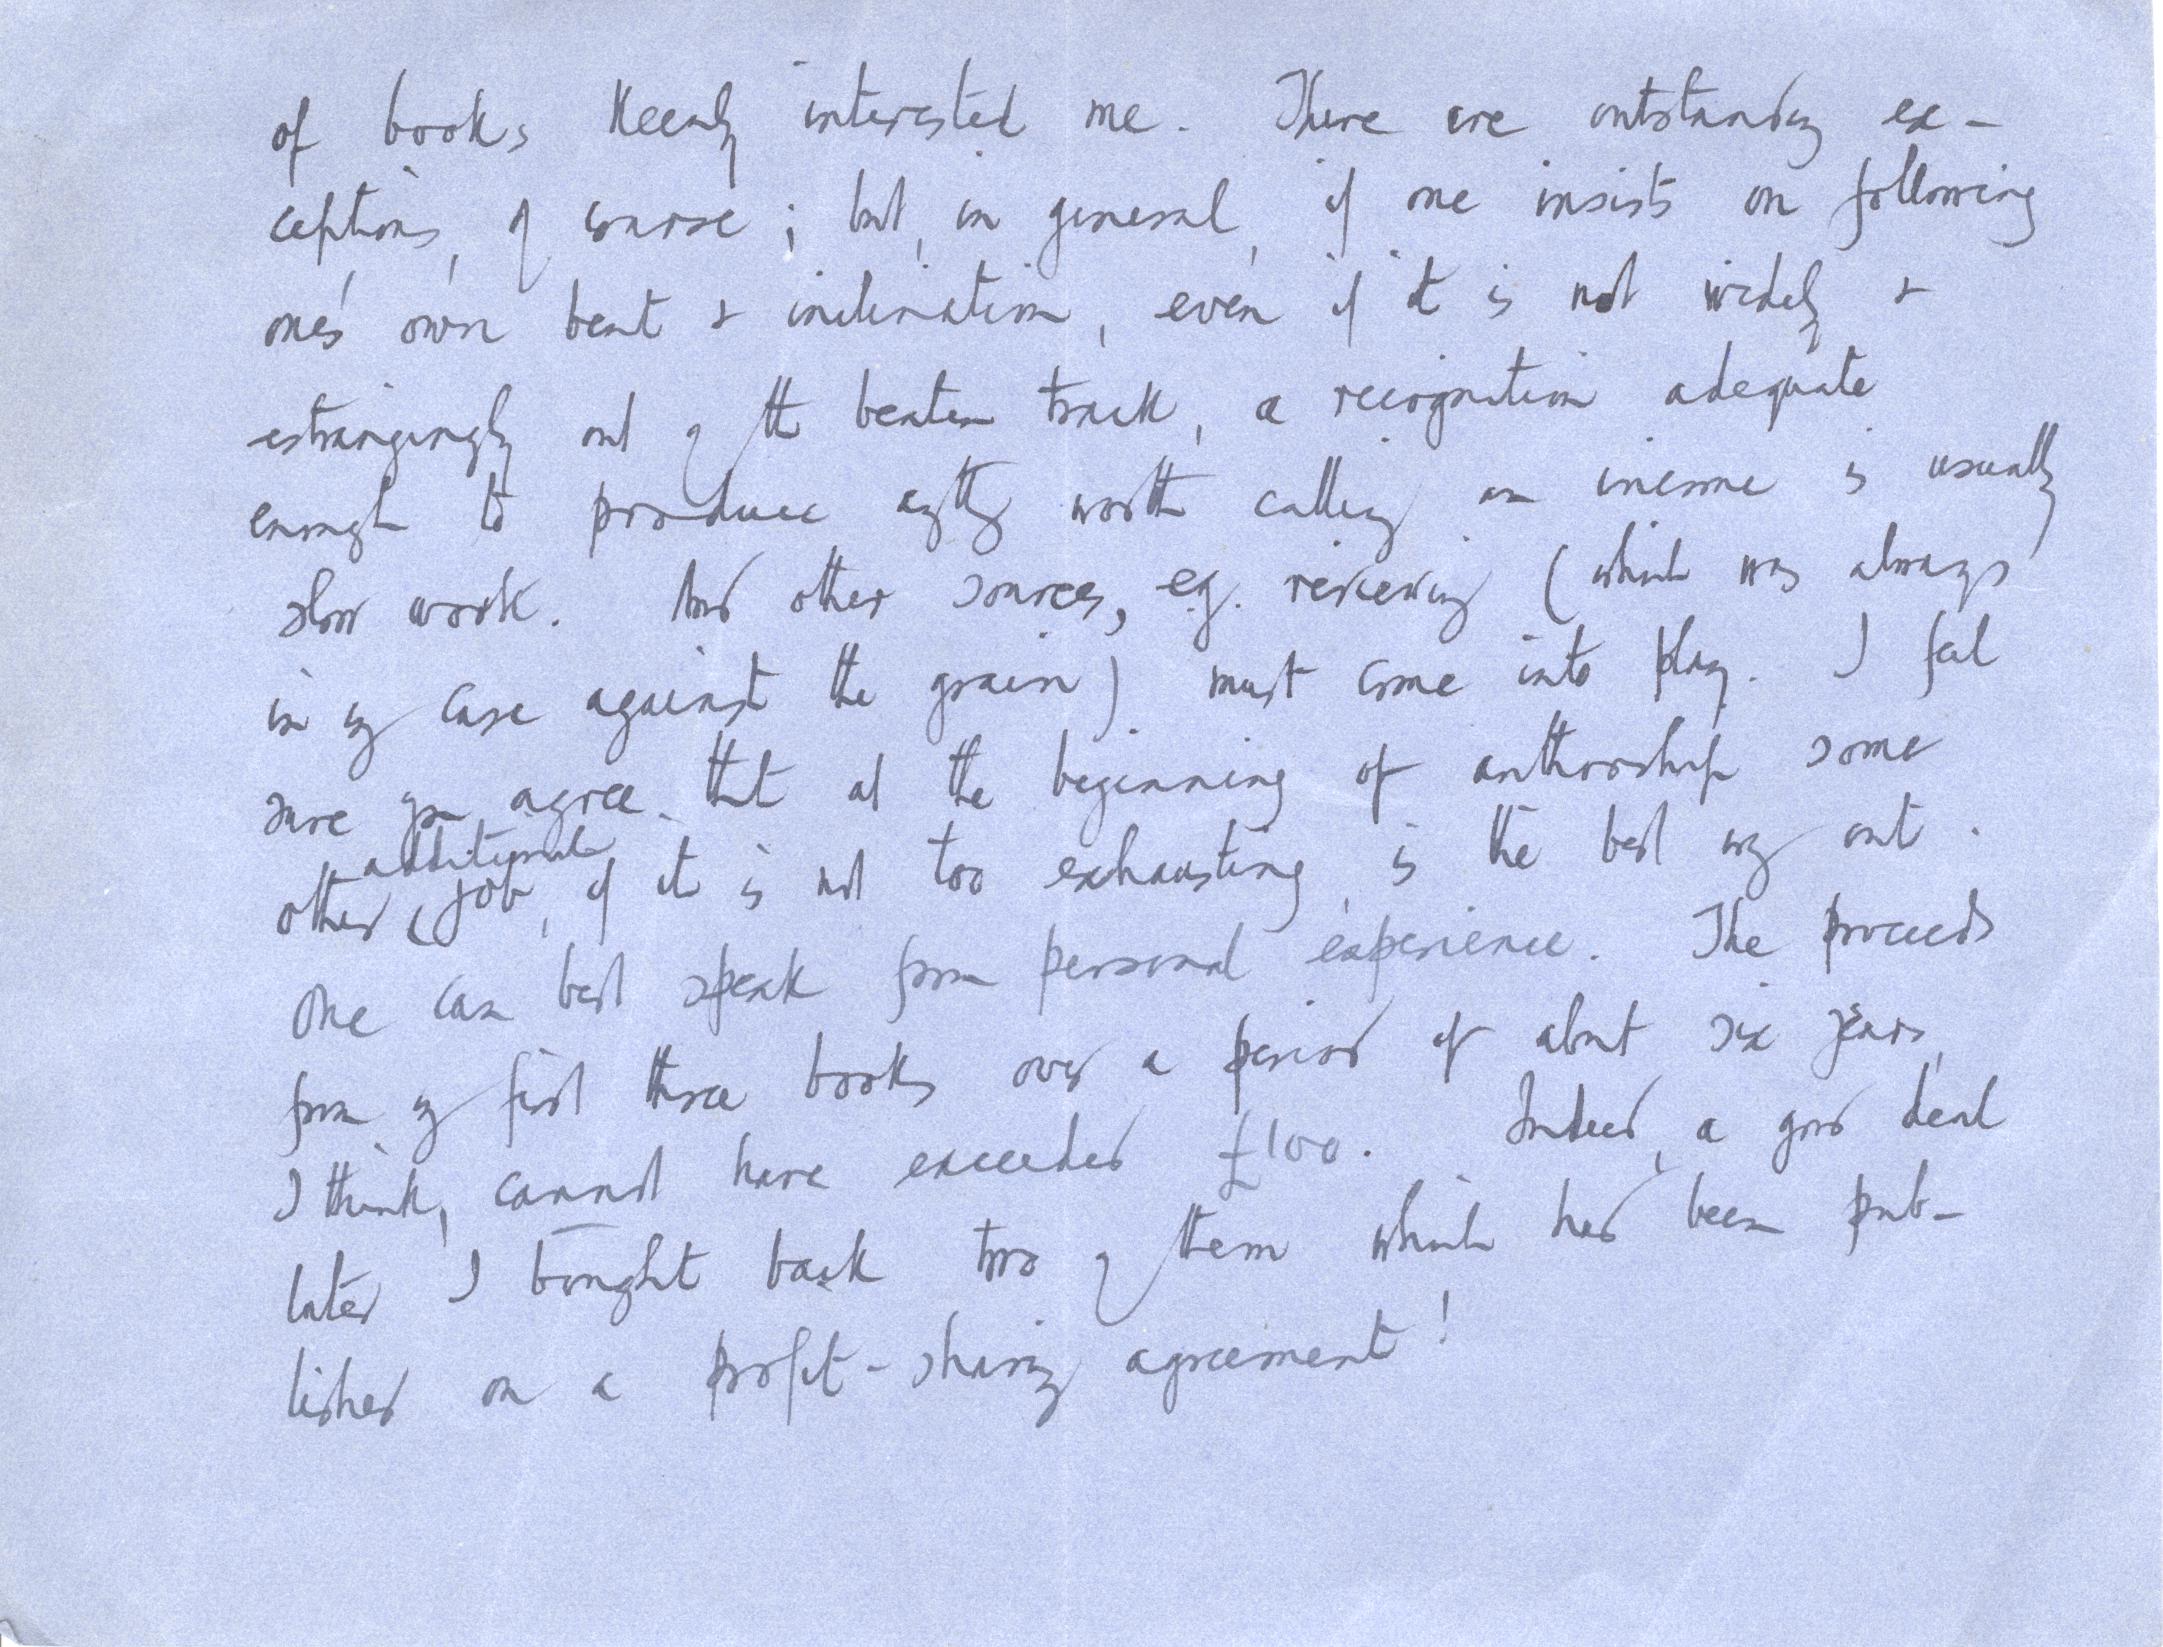 of books keenly interested me. There are outstanding ex-
ceptions, of course; but, in general, if one insists on following
one's own bent & inclination, even if it is not widely &
estrangingly out of the beaten track, a recognition adequate
enough to produce anything worth calling an income is usually
slow work. And other sources, e.g. reviewing (which was always
in my case against the grain) must come into play. I feel
sure you agree that at the beginning of authorship some
other additional job, if it is not too exhausting, is the best way out.
One can best speak from personal experience. The proceeds
from my first three books over a period of about six years,
I think, cannot have exceeded £100. Indeed, a good deal
later I bought back two of them which had been pub-
lished on a profit-sharing agreement!